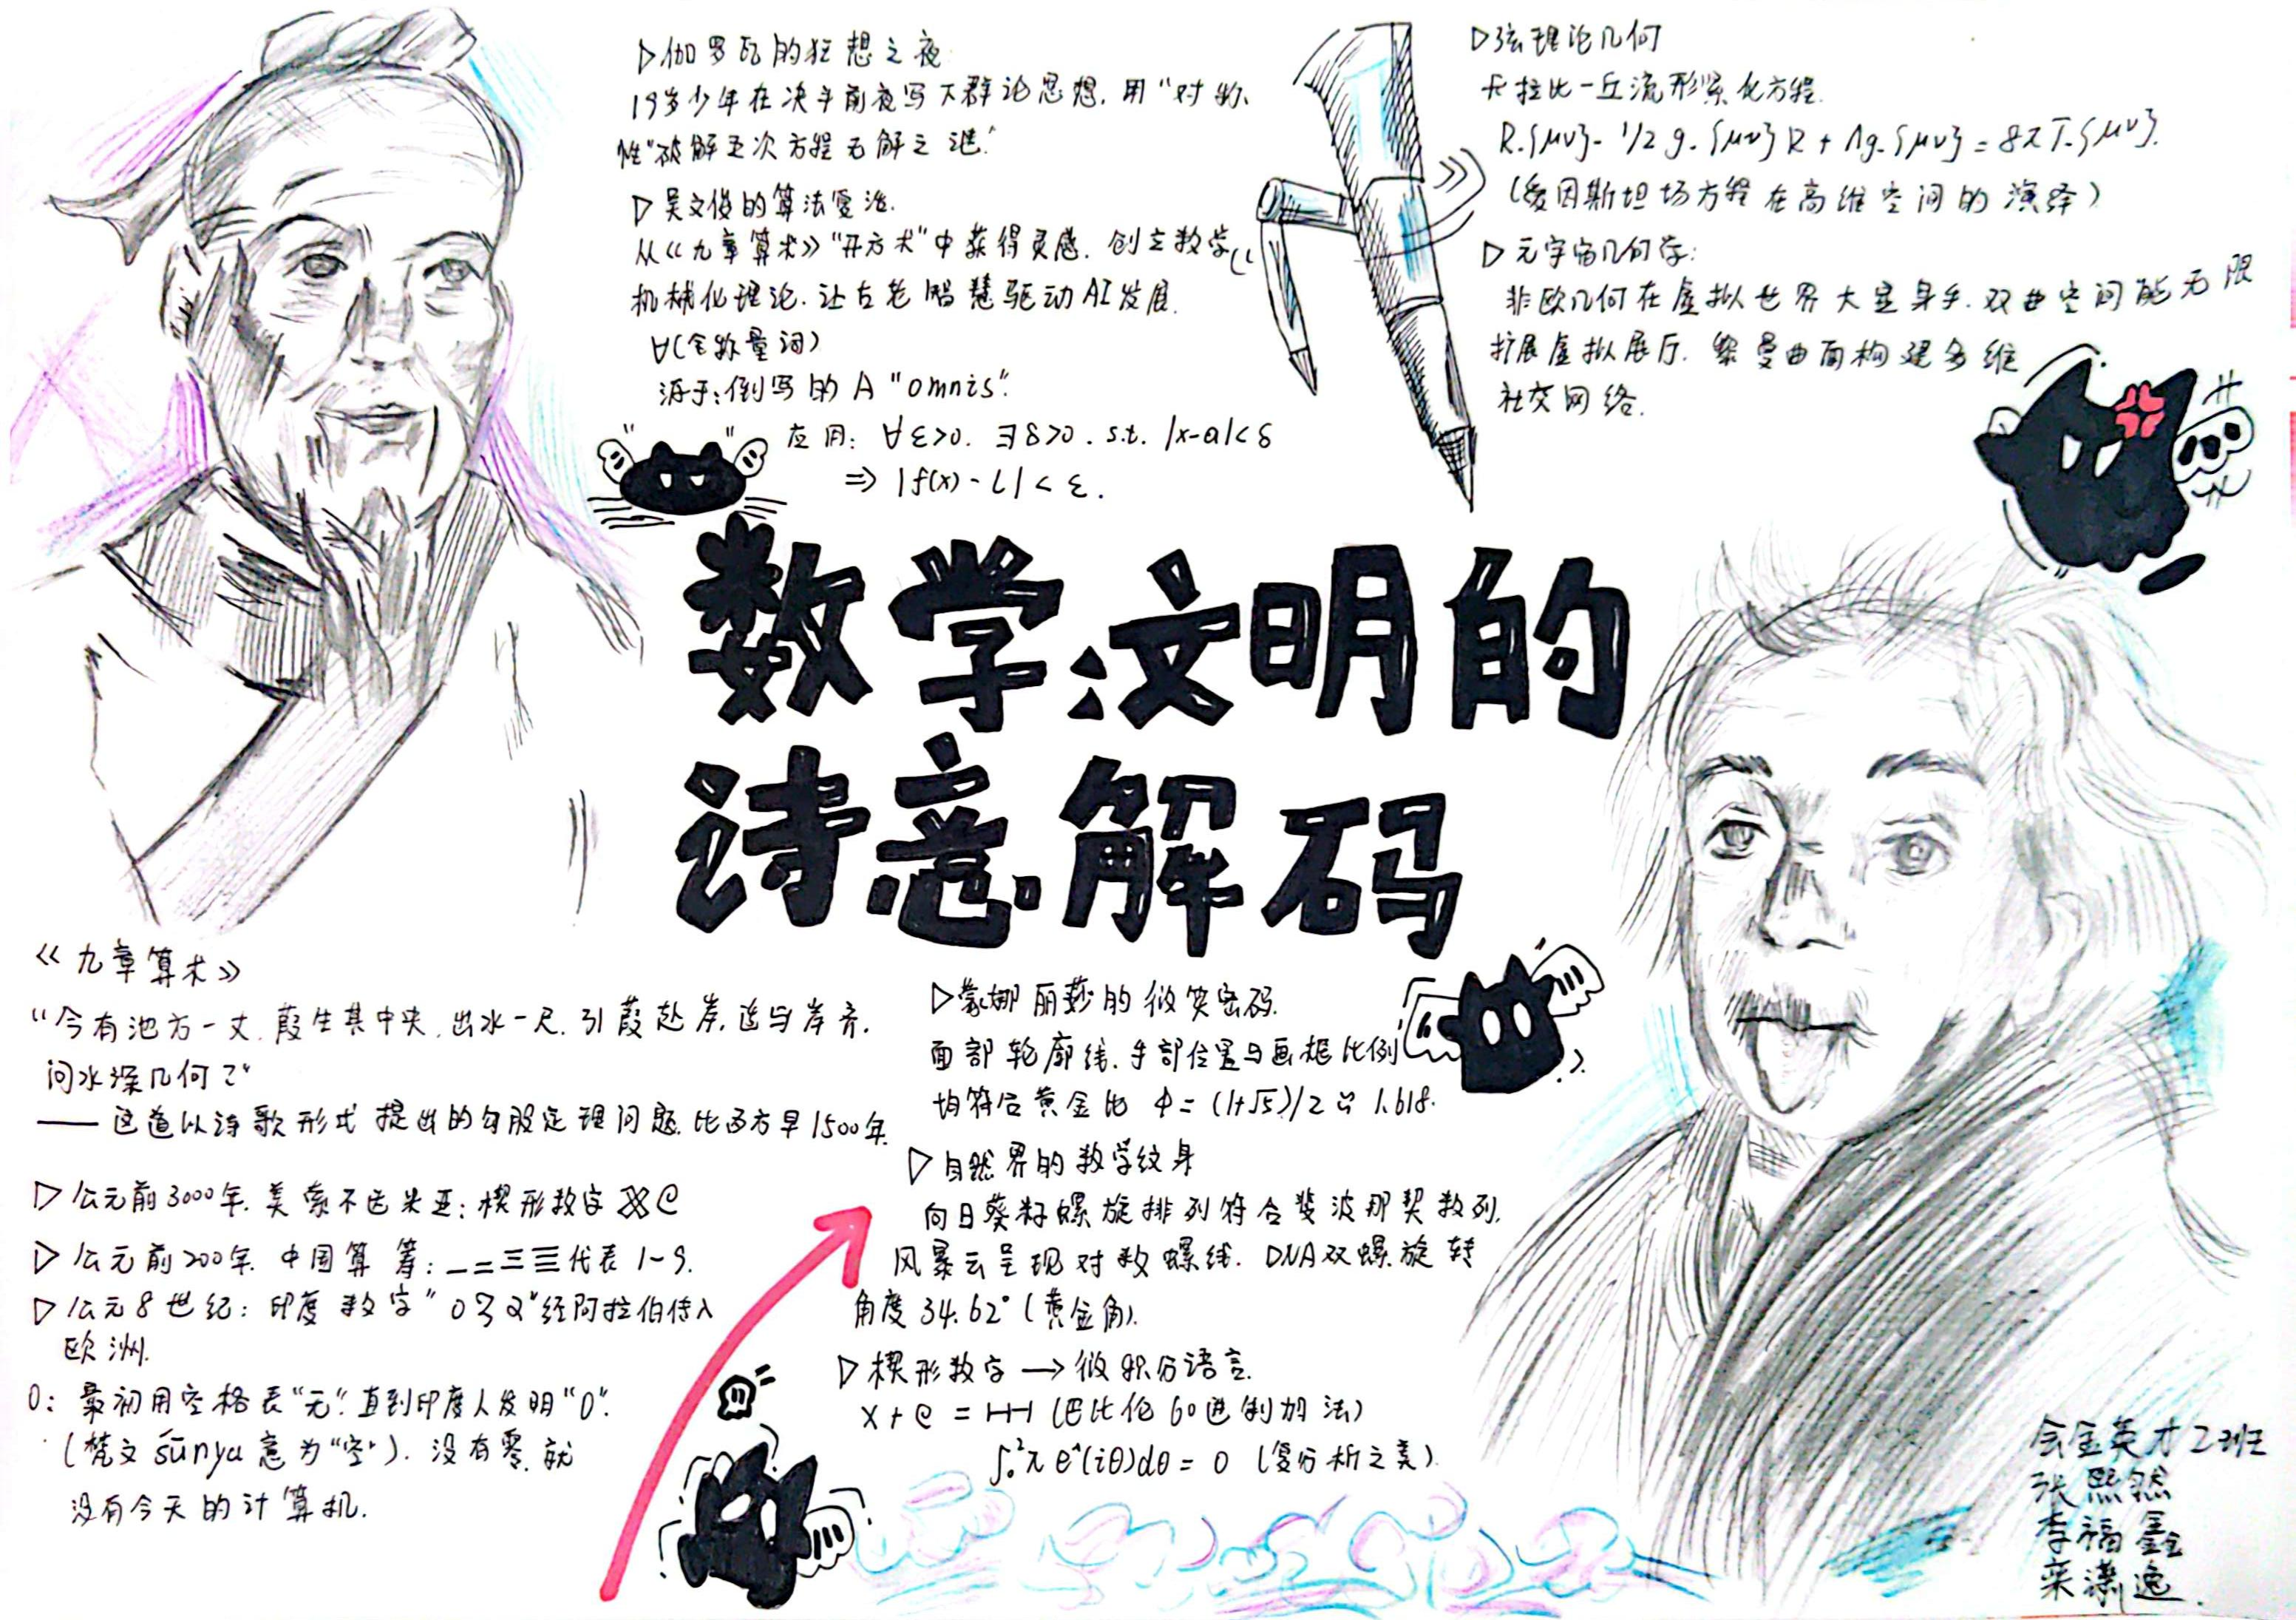 ▷伽罗瓦的狂想之夜
19岁少年在决斗前夜写下群论思想,用"对称
性"破解五次方程无解之谜.
▷吴文俊的算法
从《九章算术》"开方术"中获得灵感.创立数学
机械化理论.让古老智慧驱动AI发展.
∀(全称量词)
源于:倒写的A "omnis".
应用: ∀ε>0. ∃δ>0. s.t. |x-a|<δ
⇒ |f(x)-L|<ε.
▷弦理论几何
卡拉比-丘流形紧化方程.
R.{μν}- 1/2 g.{μν}R + Λg.{μν} = 8πT.{μν}.
(爱因斯坦场方程在高维空间的演绎)
▷元宇宙几何学:
非欧几何在虚拟世界大显身手.双曲空间能无限
扩展虚拟展厅.黎曼曲面构建多维
社交网络.
数学文明的
诗意解码
《九章算术》
"今有池方一丈.葭生其中央.出水一尺.引葭赴岸.适与岸齐.
问水深几何?"
——这道以诗歌形式提出的勾股定理问题.比西方早1500年.
▷公元前3000年.美索不达米亚:楔形数字
▷公元前200年.中国算筹:一二三亖代表1-9.
▷公元8世纪:印度数字"०३२"经阿拉伯传入
欧洲.
0:最初用空格表"无".直到印度人发明"0".
(梵文śūnya意为"空").没有零.就
没有今天的计算机.
▷蒙娜丽莎的微笑密码.
面部轮廓线.手部位置与画框比例
均符合黄金比 φ=(1+√5)/2≈1.618.
▷自然界的数学纹身
向日葵籽螺旋排列符合斐波那契数列.
风暴云呈现对数螺线. DNA双螺旋转
角度34.62°(黄金角).
▷楔形数字→微积分语言.
x+e = (巴比伦60进制加法)
∫₀²π e^(iθ)dθ=0 (复分析之美)
会金英才2班
张熙然
李福鑫
来潇逸.